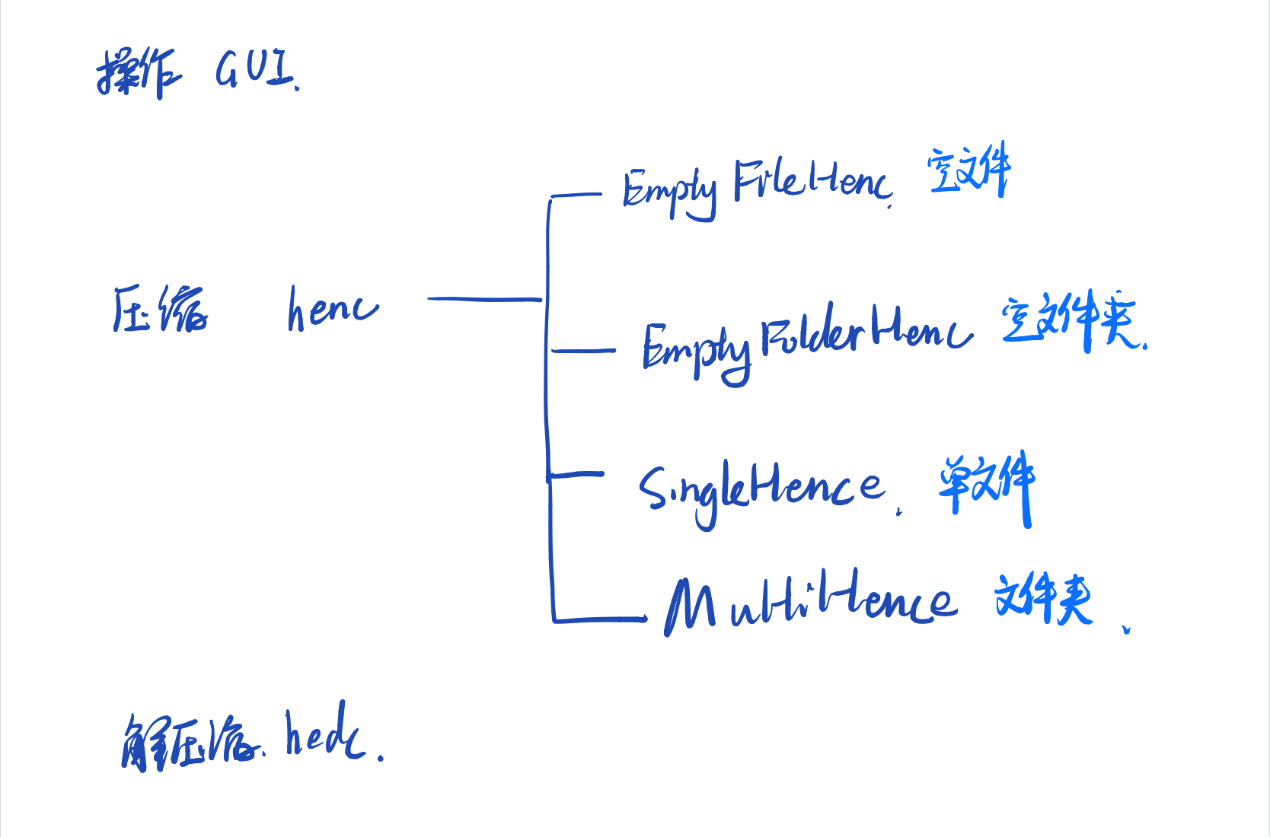 操作 GUI.
EmptyFileHenc. 空文件
压缩 henc
EmptyFolderHenc 空文件夹.
SingleHence. 单文件
MultiHence 文件夹.
解压缩. hedc.